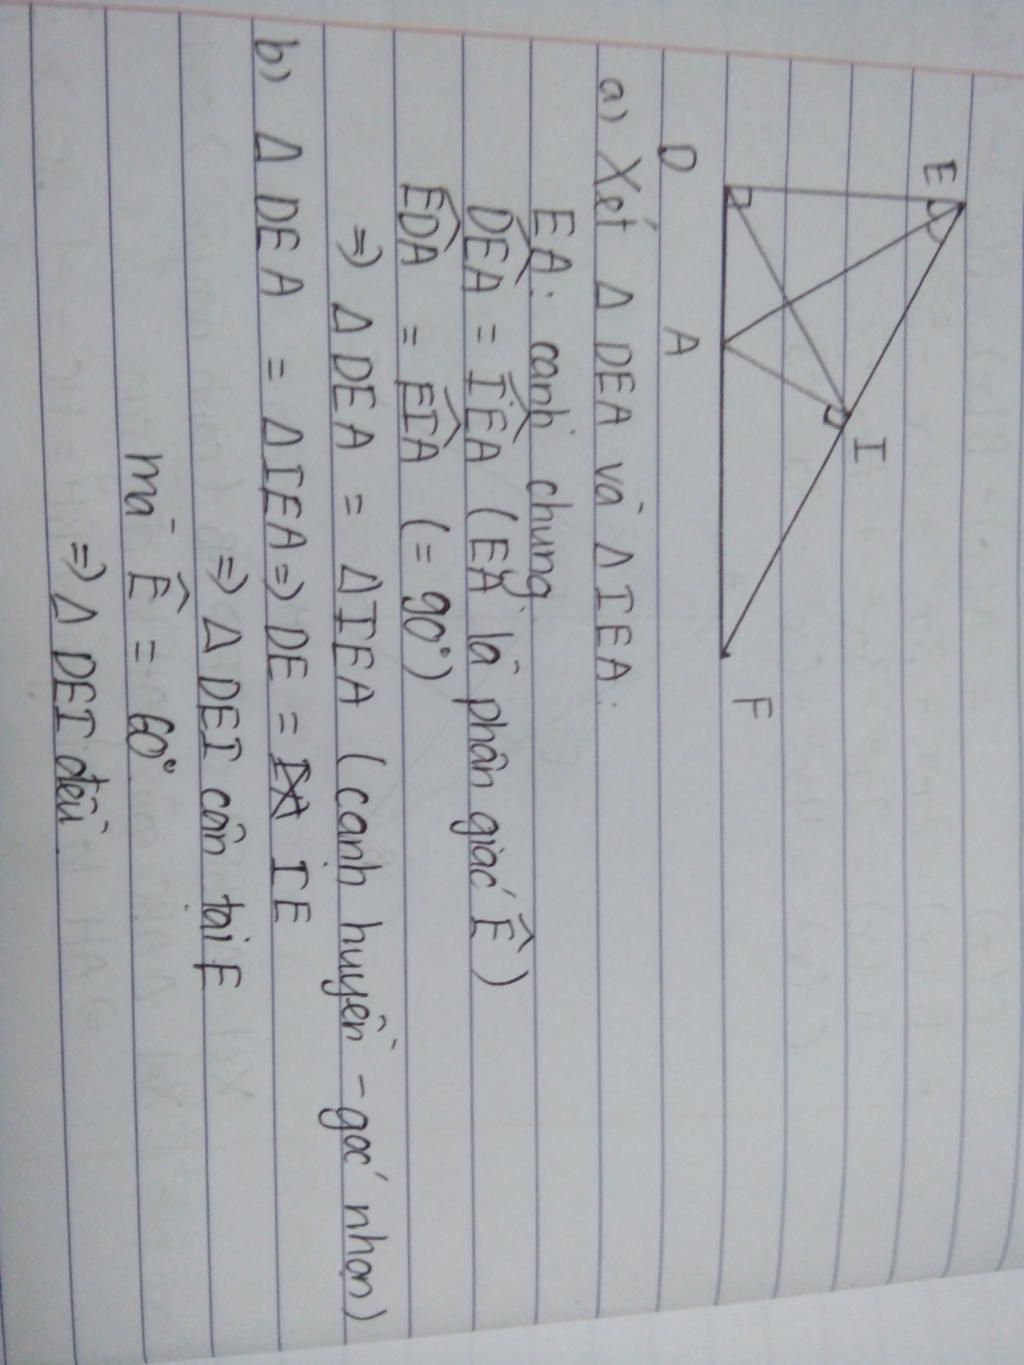 E
I
D
A
F
a) Xét Δ DEA và Δ IEA.
EA: cạnh chung.
D̂EA = ÎEA (EA là phân giác Ê)
ÊDA = ÊIA (= 90°)
=> Δ DEA = Δ IEA (cạnh huyền - góc nhọn)
b) Δ DEA = Δ IEA => DE = IE
=> Δ DEI cân tại E
mà Ê = 60°
=> Δ DEI đều.